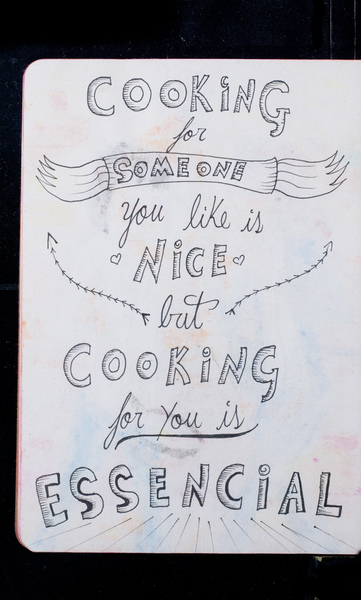 COOKiNG
for
SOMEONE
you like is
NiCE
but
COOKiNG
for you is
ESSENCiAL